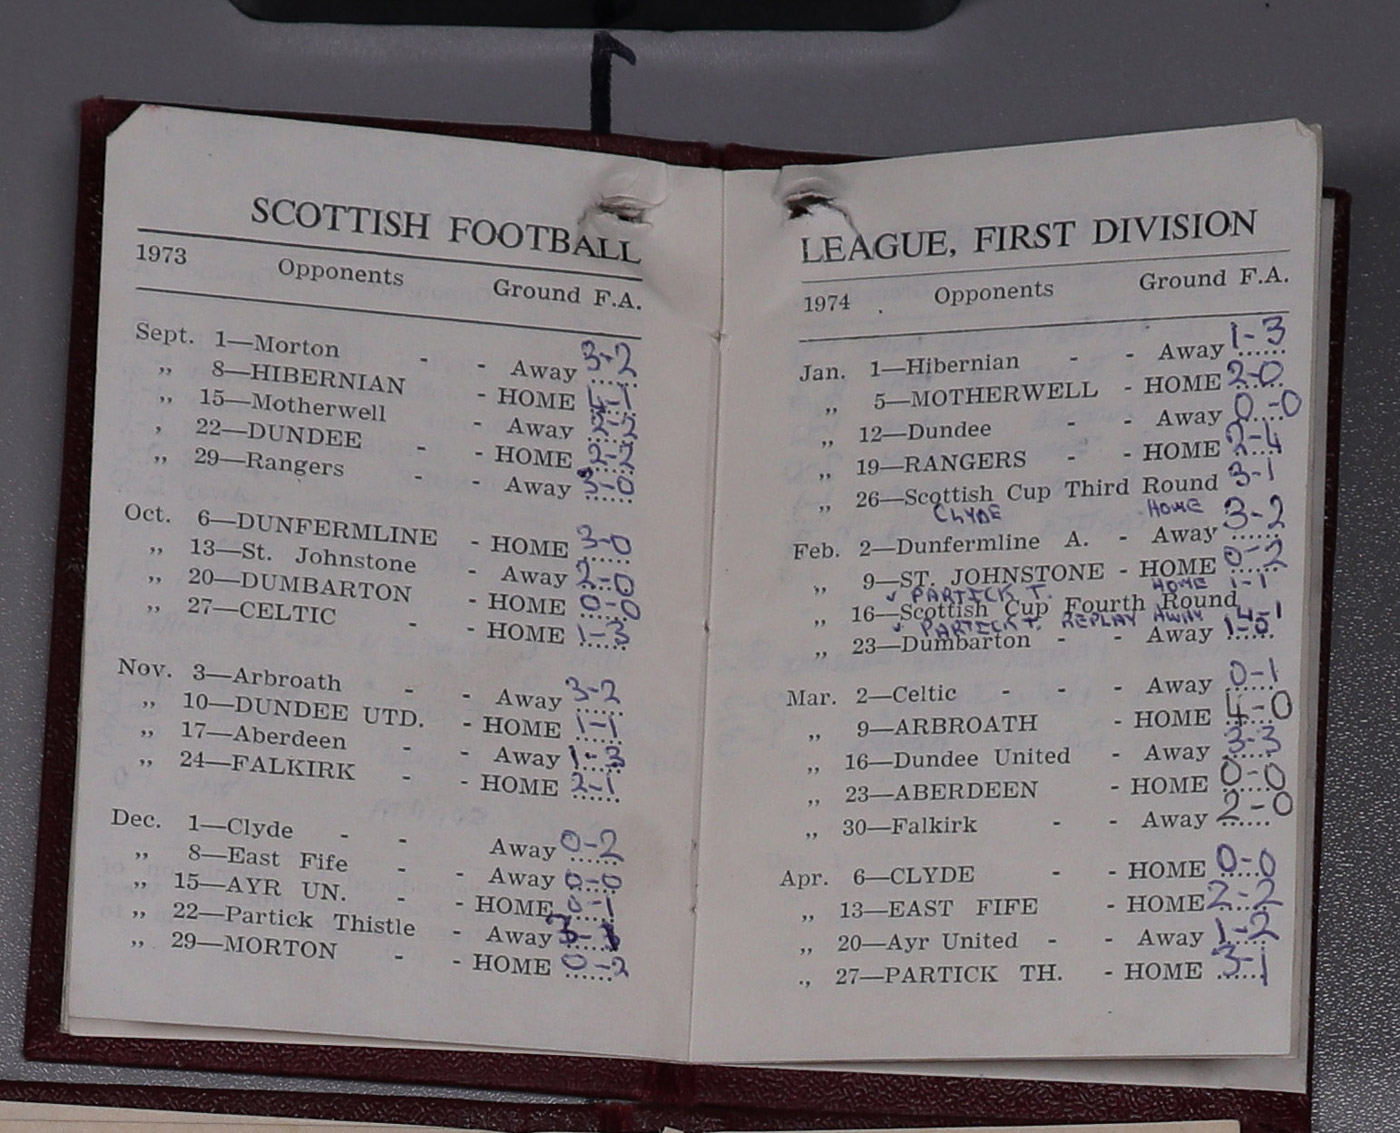 SCOTTISH FOOTBALL
1973 Opponents Ground F.A.
Sept. 1—Morton - - Away 3-2
„ 8—HIBERNIAN - HOME 4-1
„ 15—Motherwell - Away 2-2
, 22—DUNDEE - - HOME 2-2
„ 29—Rangers - - Away 3-0
Oct. 6—DUNFERMLINE - HOME 3-0
„ 13—St. Johnstone - Away 2-0
„ 20—DUMBARTON - HOME 0-0
„ 27—CELTIC - - HOME 1-3
Nov. 3—Arbroath - - Away 3-2
„ 10—DUNDEE UTD. - HOME 1-1
„ 17—Aberdeen - - Away 1-3
„ 24—FALKIRK - - HOME 2-1
Dec. 1—Clyde - - Away 0-2
„ 8—East Fife - - Away 0-0
„ 15—AYR UN. - - HOME 0-1
„ 22—Partick Thistle - Away 3-1
„ 29—MORTON - - HOME 0-2
LEAGUE, FIRST DIVISION
1974 Opponents Ground F.A.
Jan. 1—Hibernian - - Away 1-3
„ 5—MOTHERWELL - HOME 2-0
„ 12—Dundee - - Away 0-0
„ 19—RANGERS - - HOME 2-4
„ 26—Scottish Cup Third Round 3-1
CLYDE HOME
Feb. 2—Dunfermline A. - Away 3-2
„ 9—ST. JOHNSTONE - HOME 0-2
v PARTICK T. HOME 1-1
„ 16—Scottish Cup Fourth Round
v PARTICK T. REPLAY AWAY 4-1
„ 23—Dumbarton - - Away 1-0
Mar. 2—Celtic - - - Away 0-1
„ 9—ARBROATH - HOME 4-0
„ 16—Dundee United - Away 3-3
„ 23—ABERDEEN - HOME 0-0
„ 30—Falkirk - - Away 2-0
Apr. 6—CLYDE - - HOME 0-0
„ 13—EAST FIFE - HOME 2-2
„ 20—Ayr United - - Away 1-2
., 27—PARTICK TH. - HOME 3-1